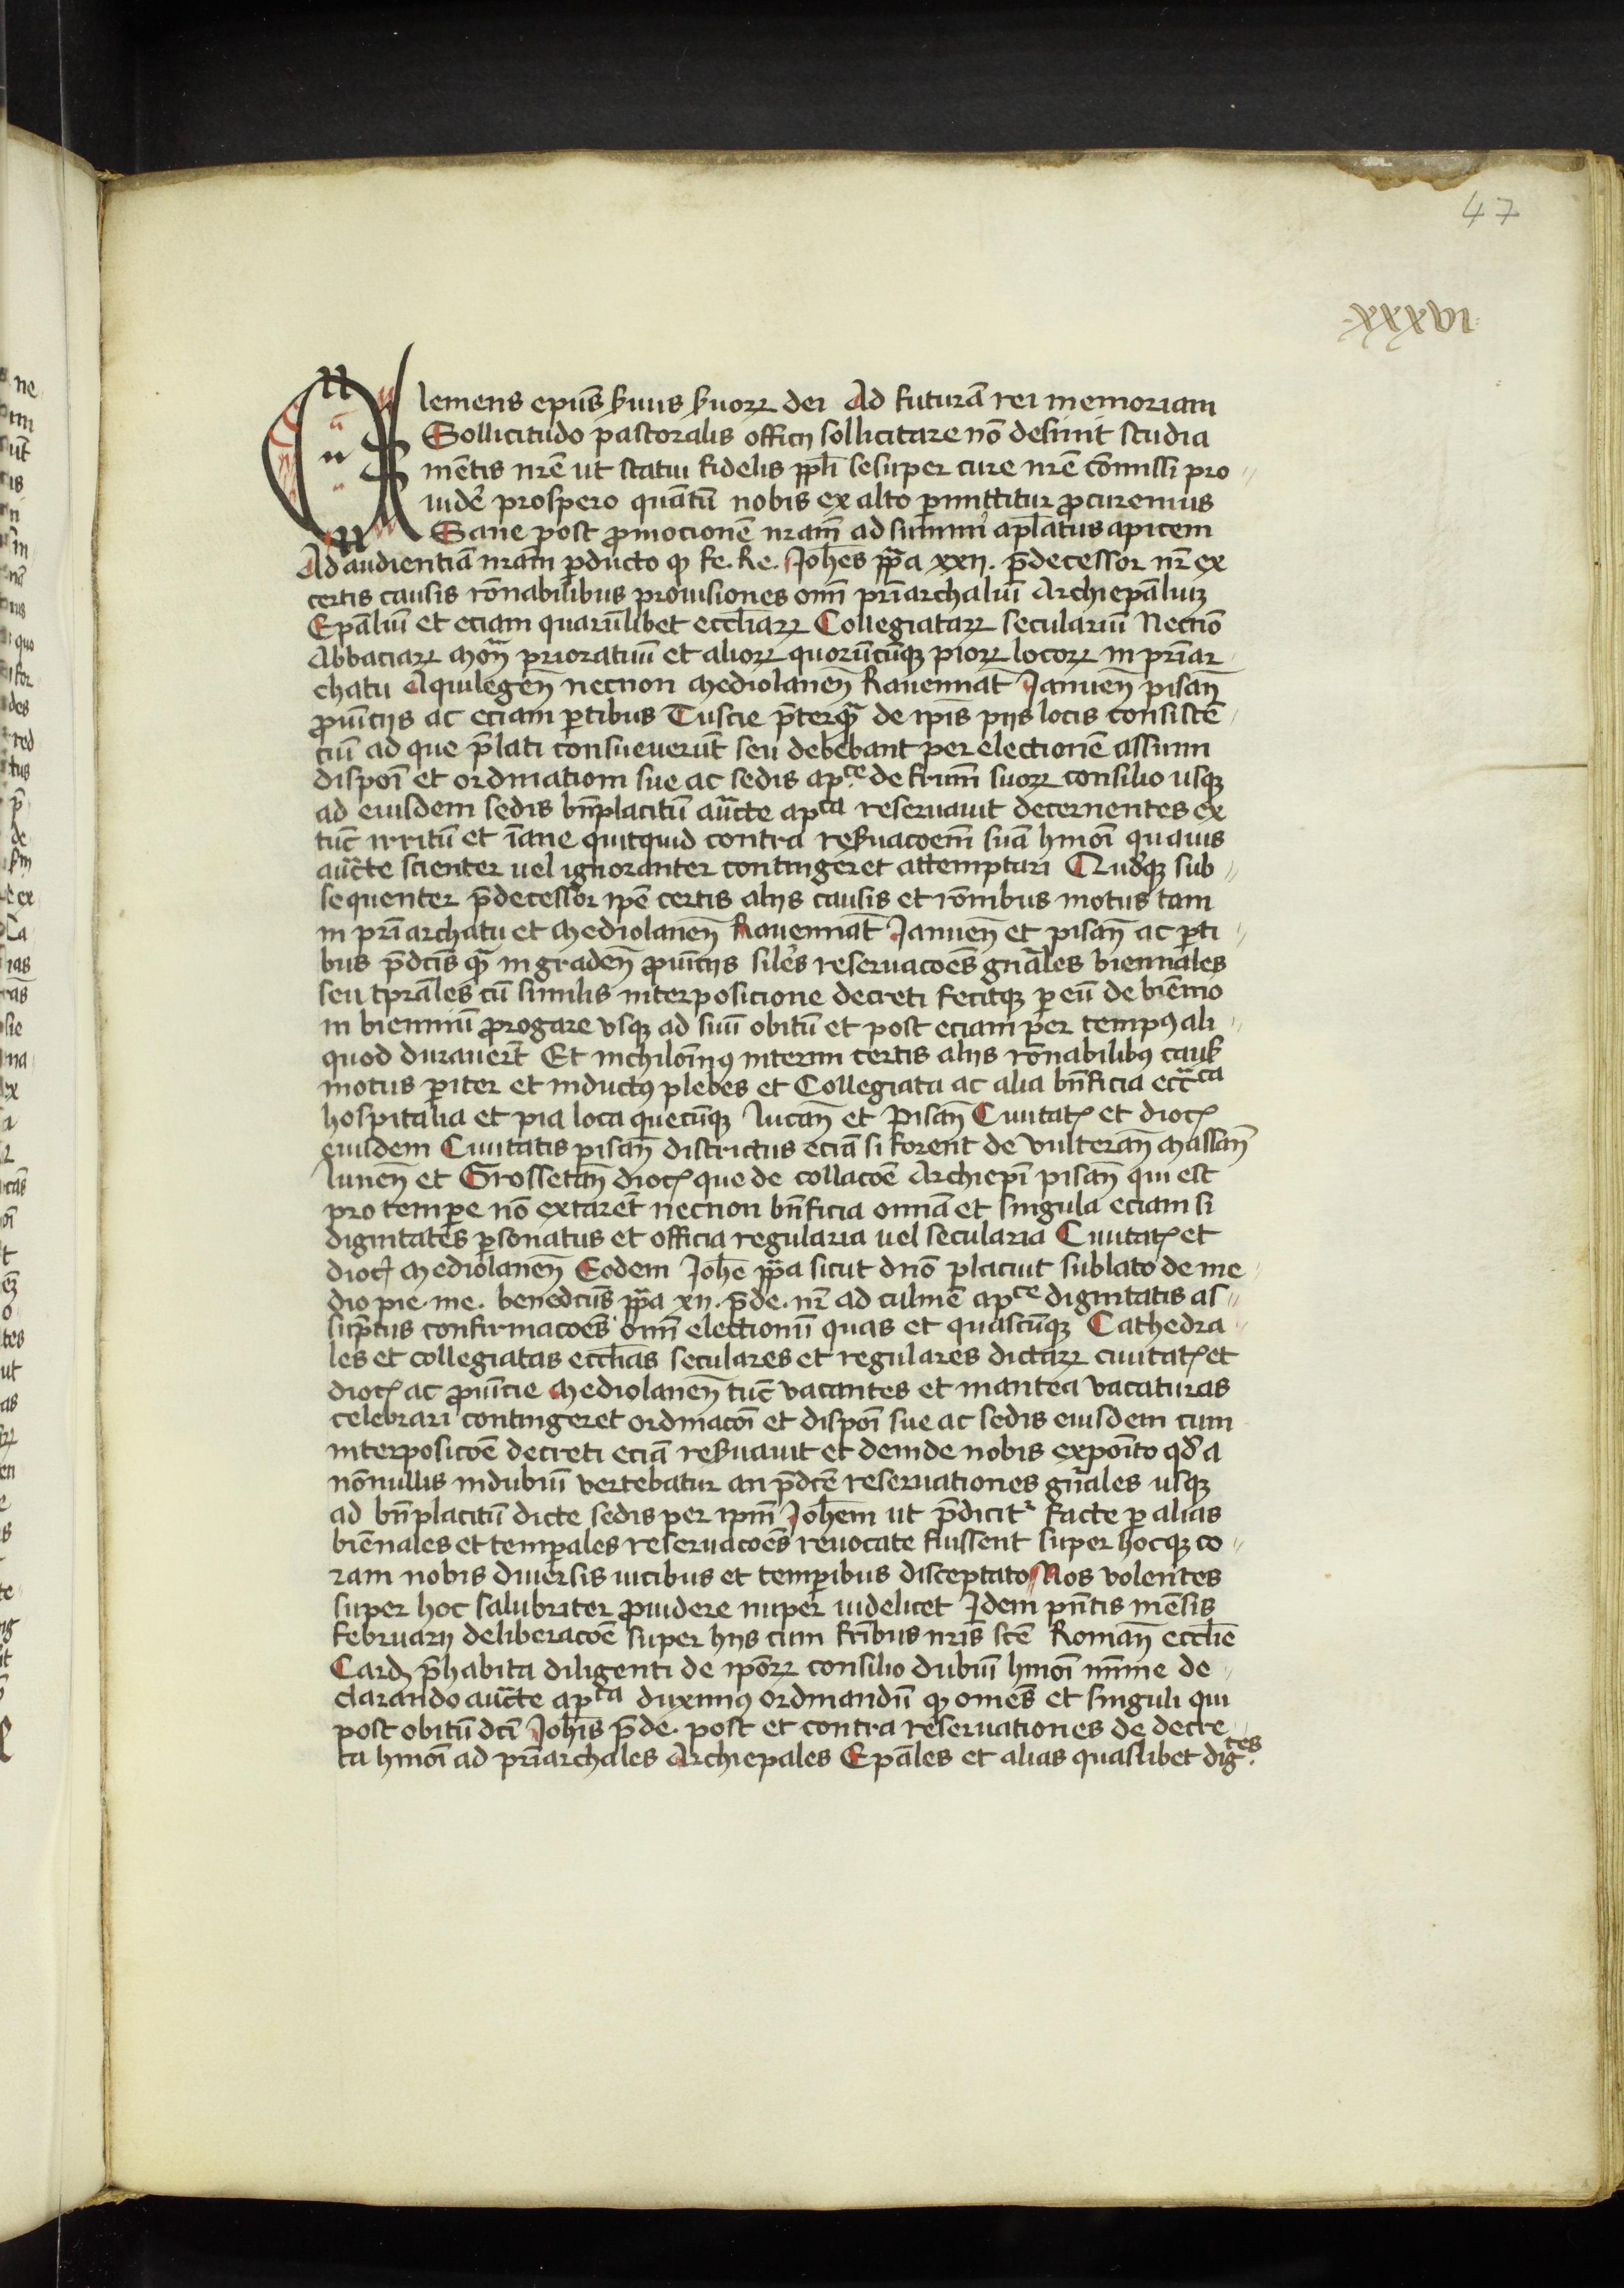 47
xxxvi
Clemens ep̄us ẜuus ẜuoꝝ dei Ad futurā rei memoriam
Sollicitudo pastoralis officij sollicitare nō desinit studia
mētis nr̄e ut statui fidelis pp̄li sesuper cure nr̄e cōmissi pro
uidēr prospero quātū nobis ex alto ꝑmittitur ꝓcuremus
Sane post ꝓmocionē nrām ad summi ap̄latus apicem
Ad audientiā nrām ꝑducto qꝫ fe. Re. Joh̄es pp̄a xxij. p̄decessor nr̄ ex
certis causis rōnabilibus prouisiones om̄i pr̄iarchaliū Archiep̄aliuꝫ
Ep̄aliū et eciam quarūlibet eccl̄iaꝝ Collegiataꝝ seculariū Necnō
Abbaciaꝝ Mōn̄ prioratuū et alioꝝ quorūcūqꝫ pioꝝ locoꝝ in pr̄iar
chatu Aquilegen̄ necnon Mediolanen̄ Rauennat̄ Januen̄ pisan̄
ꝓuīcijs ac eciam ꝑtibus Tuscie p̄terqā de ip̄is pijs locis consistē
ciū ad que p̄lati consueuerūt seu debebant per electionē assumi
dispoī et ordinatiom sue ac sedis apᶜᵉ de fr̄um̄ suoꝝ consilio usqꝫ
ad eiusdem sedis bn̄placitū auc̄te apᶜᵃ reseruauit decernentes ex
tūc irritū et īane quitquid contra reẜuacoem̄ suā hm̄oī quauis
auc̄te scienter uel ignoranter contingeret attemptari Quodqꝫ sub
sequenter p̄decessor ip̄e certis alijs causis et rōnibus motus tam
in pr̄iarchatu et Mediolanen̄ Rauennat̄ Januen̄ et pisan̄ ac ꝑti
bus p̄dcīs qā in graden̄ ꝓuīcijs silēs reseruacoēs gn̄ales biennales
seu tp̄rales cū similis interposicione decreti fecitqꝫ ꝑ eū de biēnio
in bienniū ꝓrogare vsqꝫ ad suū obitū et post eciam per tempꝰ ali
quod durauer̄t Et nichiloīnꝰ interim certis alijs rōnabilibꝰ cauẜ
motus ꝑiter et inductꝰ plebes et Collegiata ac alia bn̄ficia ecc̄ᶜᵃ
hospitalia et pia loca quecūqꝫ lucan̄ et Pisan̄ Ciuitatꝭ et diocꝭ
eiusdem Ciuitatis pisan̄ districtus eciā si forent de Vulteran̄ Massan̄
lunen̄ et Grossetan̄ diocꝭ que de collacoē Archiep̄i pisan̄ qui est
pro tempe nō extarēt necnon bn̄ficia omnā et singula eciam si
dignitates ꝑsonatus et officia regularia uel secularia Ciuitatꝭ et
diocꝭ Mediolanen̄ Eodem Joh̄e pp̄a sicut dn̄o placuit sublato de me
dio pie. me. benedcūs pp̄a xij. p̄de. nr̄ ad culmē apᶜᵉ dignitatis as
sūptus confirmacoēs om̄i electionū quas et quascūqꝫ Cathedra
les et collegiatas eccl̄ias seculares et regulares dictaꝝ ciuitatꝭ et
diocꝭ ac ꝓuīcie Mediolanen̄ tūc vacantes et inantea vacaturas
celebrari contingeret ordinacoī et dispoī sue ac sedis eiusdem cum
interposicoē decreti eciā reẜuauit et deinde nobis expoīto qd̄ a
nōnullis indubiū vertebatur an p̄dcē reseruationes gn̄ales usqꝫ
ad bn̄placitū dicte sedis per ip̄m Joh̄em ut p̄dicit᷑ facte ꝑ alias
biēnales et temꝑales reseruacoēs reuocate fuissent super hocqꝫ co
ram nobis diuersis uicibus et temꝑibus disceptato Nos volentes
super hoc salubriter ꝓuidere nuper uidelicet Idem pn̄tis mēsis
februarij deliberacoē super hijs cum fr̄ibus nr̄is scē Roman̄ eccl̄ie
Card̄ p̄habita diligenti de ipōꝝ consilio dubiū hm̄oī minīe de
clarando auc̄te apᶜᵃ duximꝰ ordinandū qꝫ omēs et singuli qui
post obitū dcī Joh̄is p̄de. post et contra reseruationes de decre
ta hm̄oī ad pr̄iarchales Archiepales Ep̄ales et alias quaslibet digᵗᵉˢ.